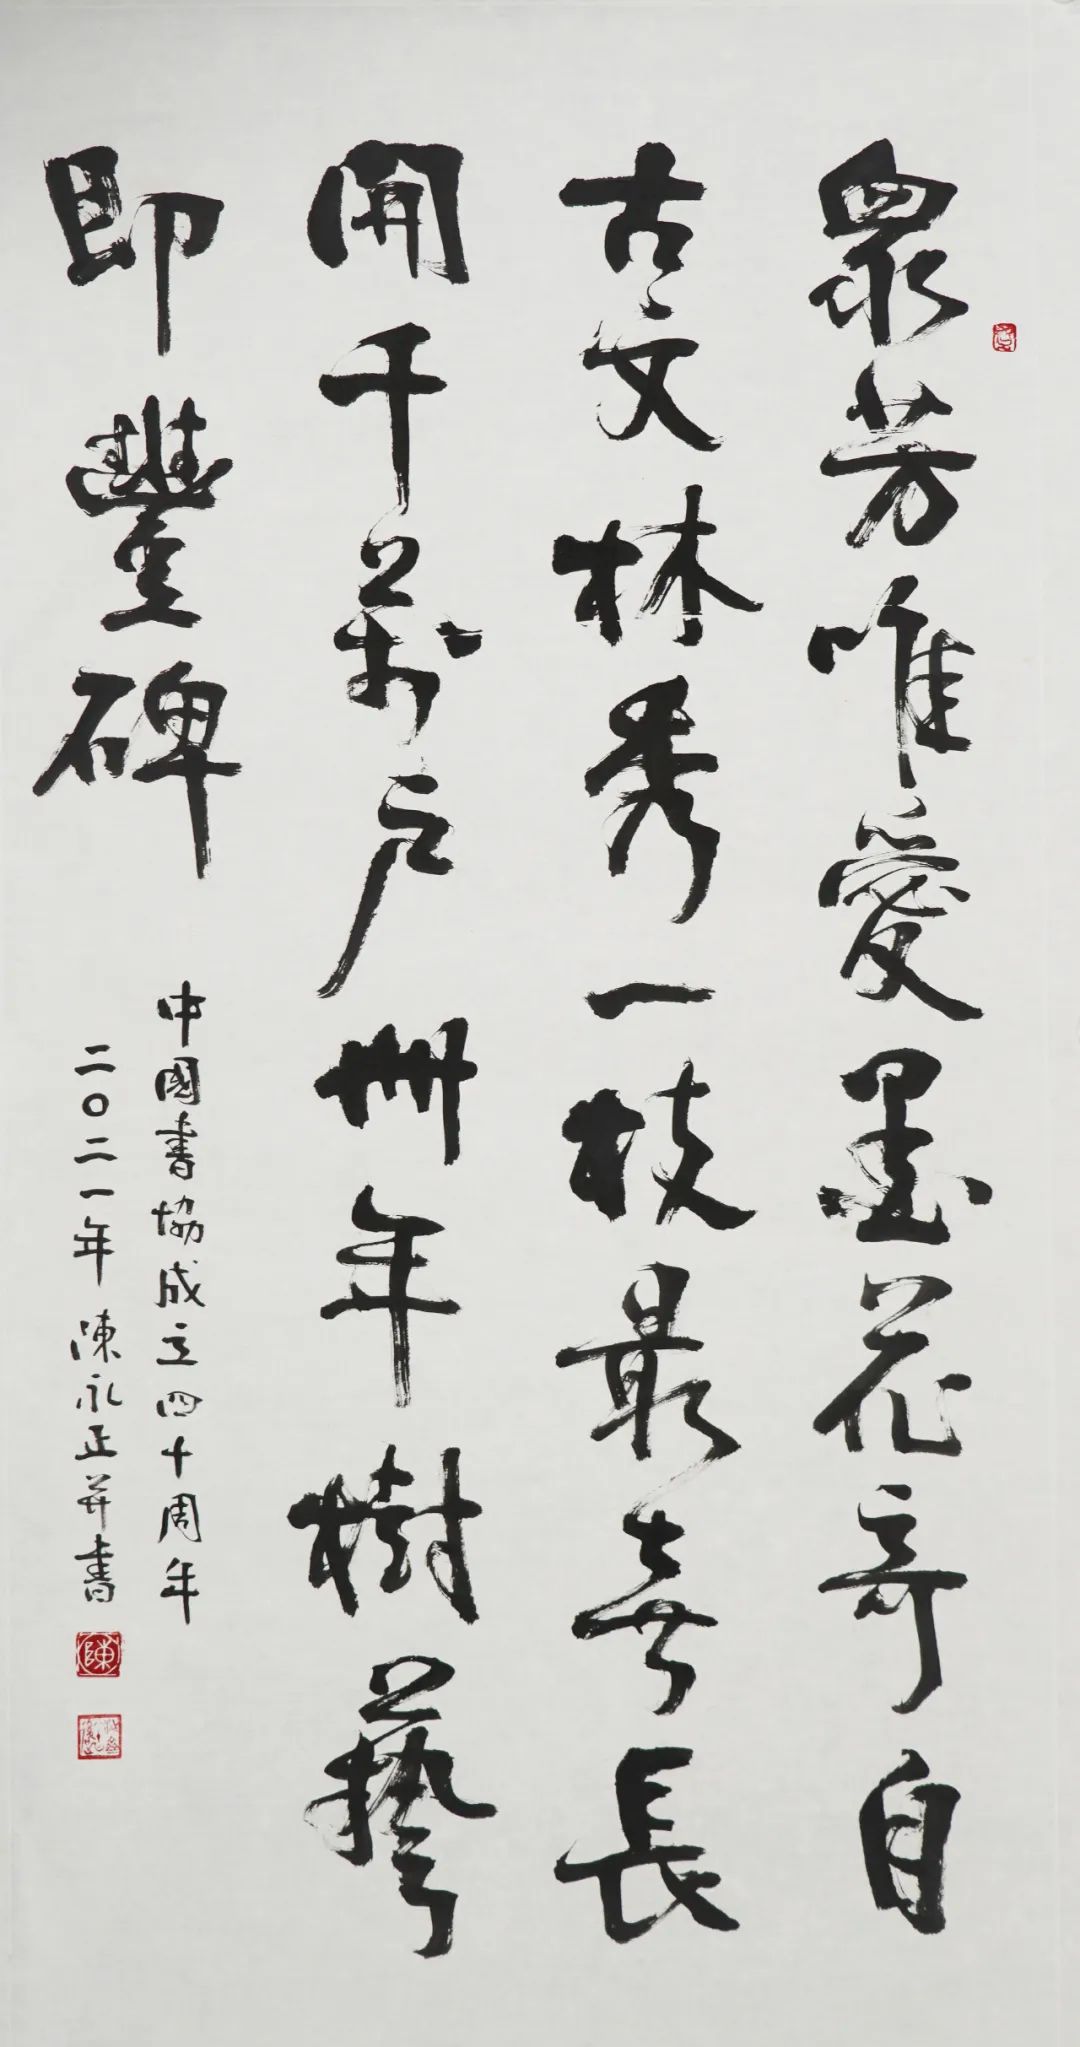 眾芳唯愛墨花奇自
古文林秀一枝最喜長
開千萬户卌年樹藝
即豐碑
中國書協成立四十周年
二〇二一年陳永正并書
陳